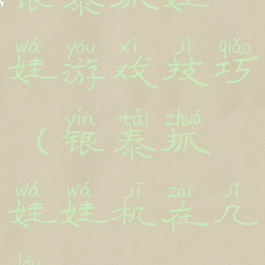 银泰抓娃
wá yóu xì jì qiǎo
娃游戏技巧
yín tài zhuā
(银泰抓
wá wá jī zài jǐ
娃娃机在几
lóu